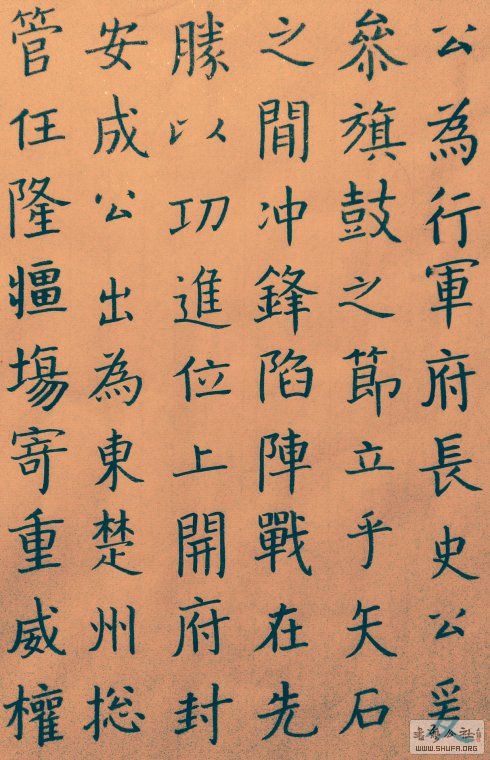 公為行軍府長史公爰
叅旗鼓之節立乎矢石
之間冲鋒陷陣戰在先
勝以功進位上開府封
安成公出為東楚州捴
管任隆疆塲寄重威權
WWW.SHUFA.ORG